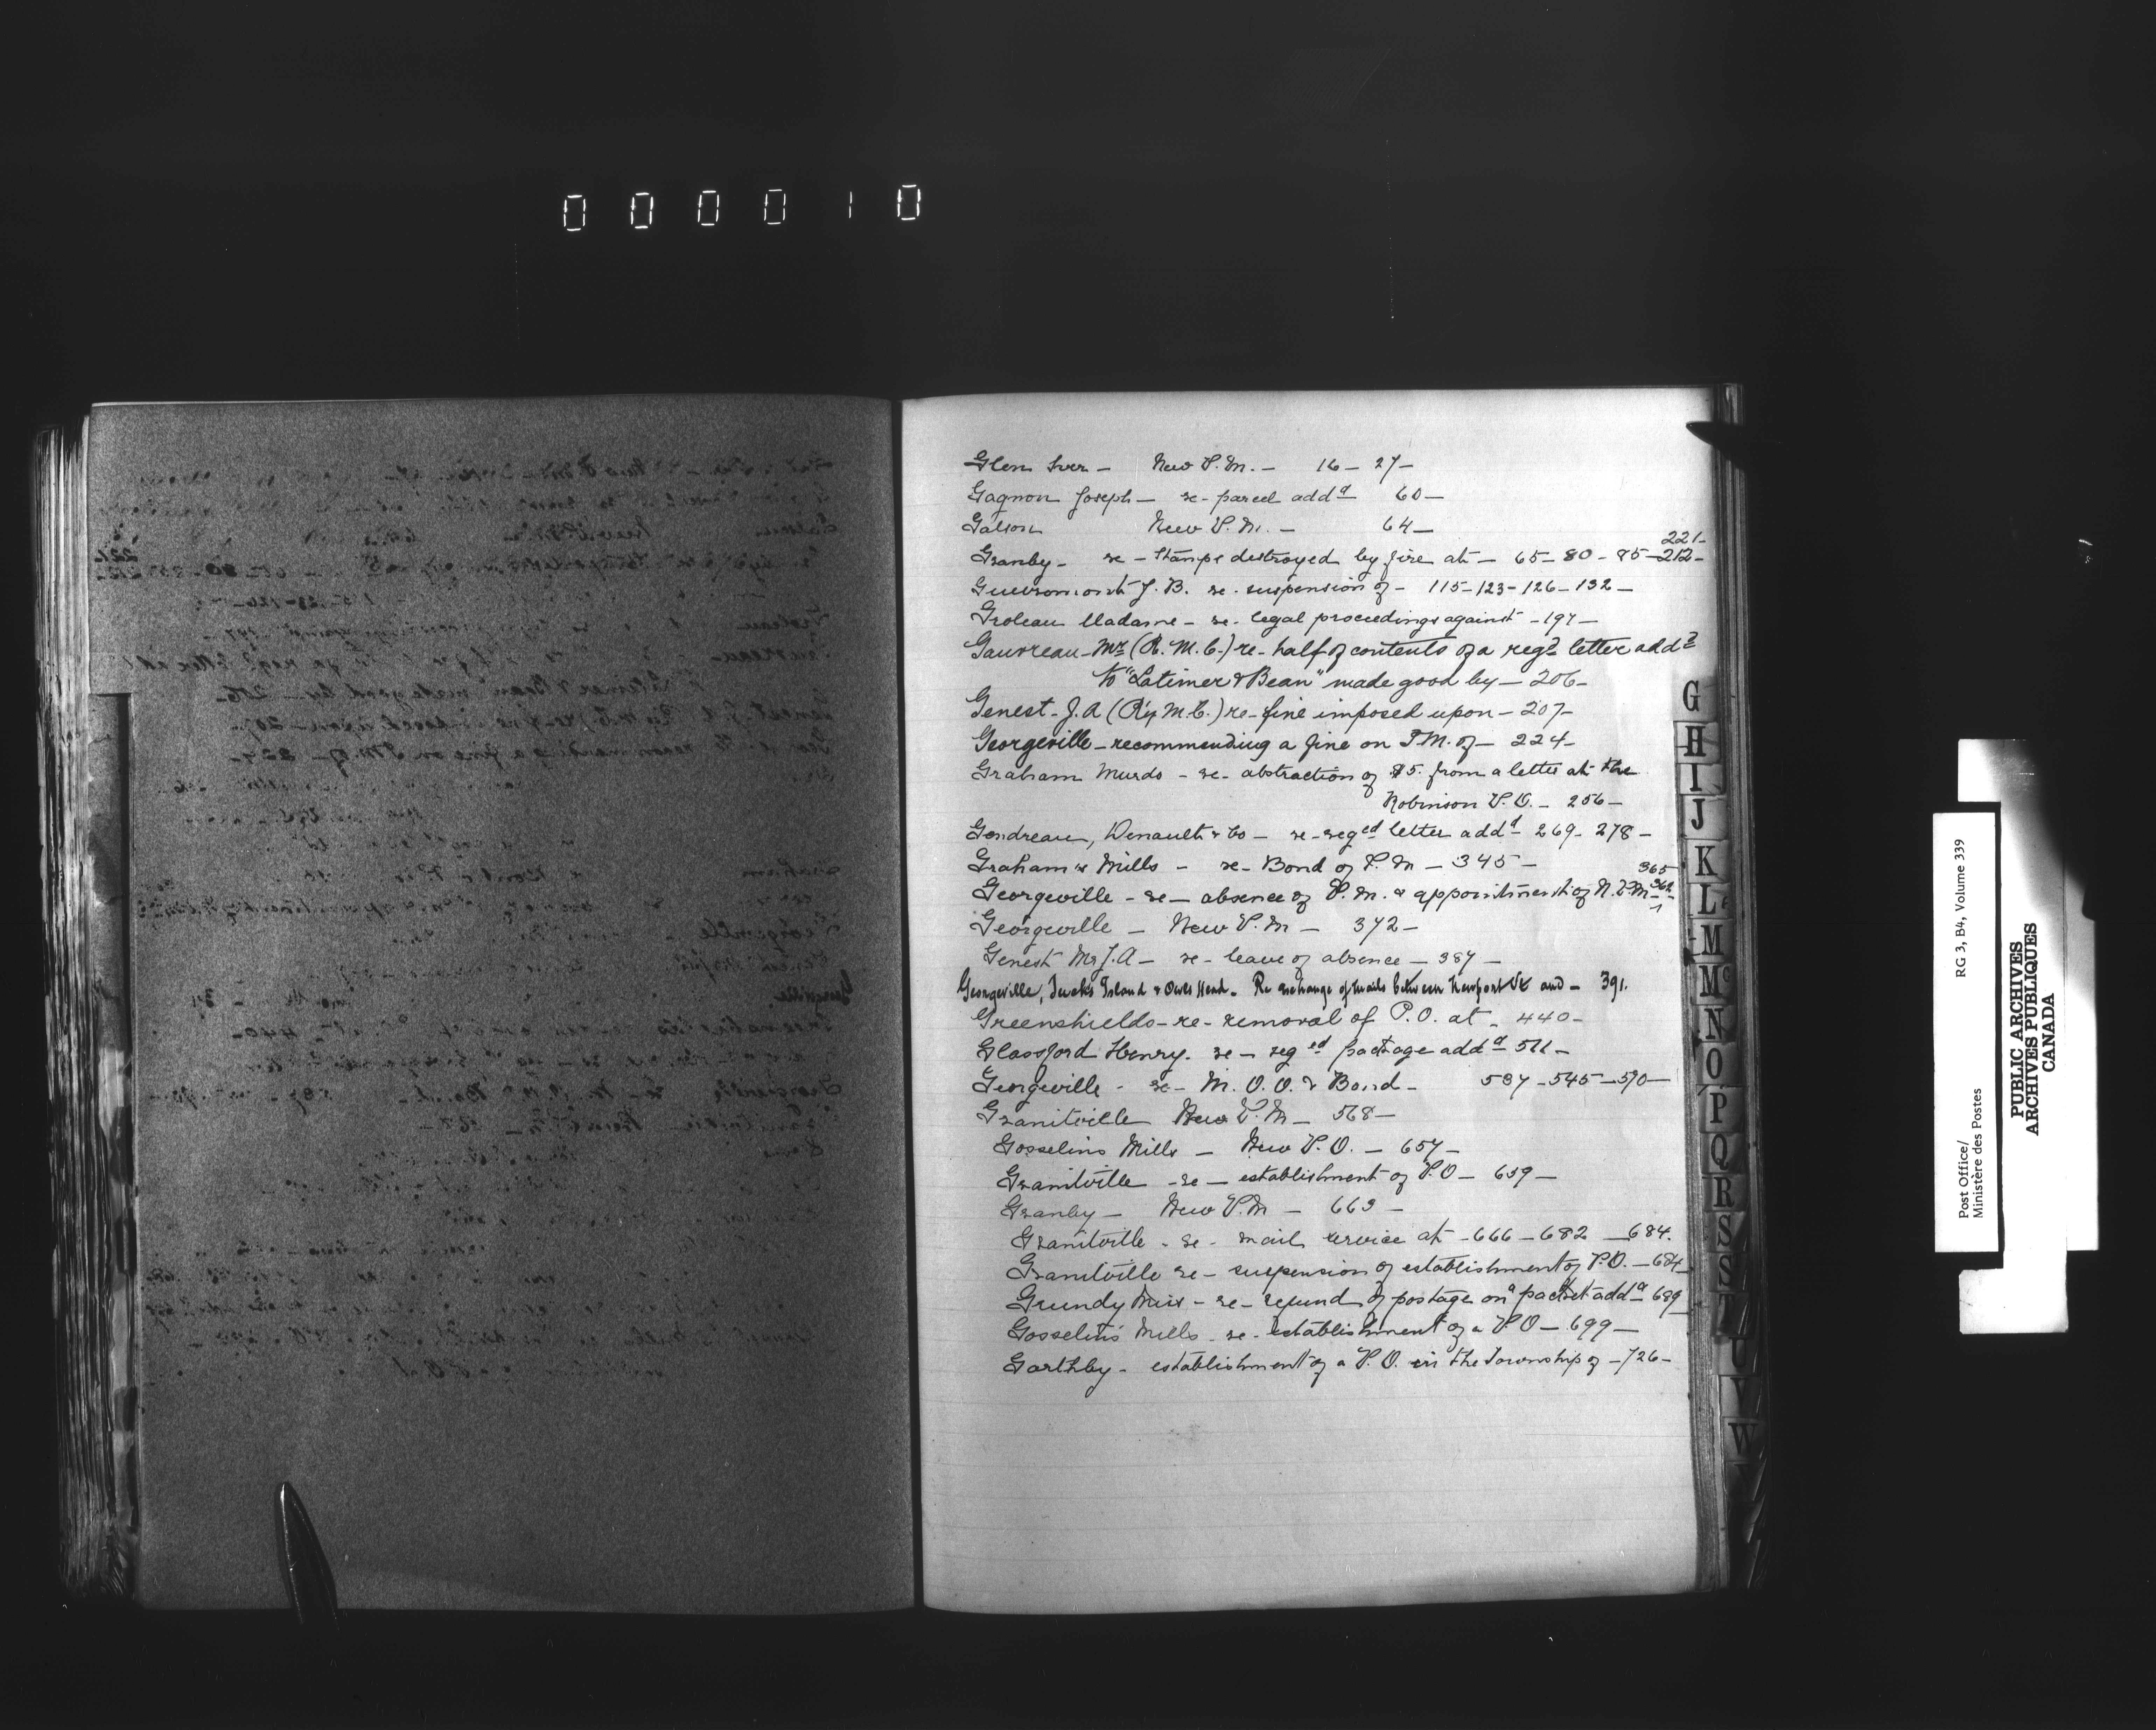 000010
Glen Iver - New P.M. - 16 - 27 -
Gagnon Joseph - re - parcel addd 60 -
Galson New P.M. - 64 -
221-
Granby - re - Stamps destroyed by fire at - 65 - 80 - 85 - 212 -
J. B. re - suspension of - 115 - 123 - 126 - 132 -
Groleau Madame - re - legal proceedings against - 197 -
Gauvreau - Mr (R. M. C.) re - half of contents of a regd letter addd
to "Latimer & Bean" made good by - 206 -
Genest - J. A (Ry M. C.) re - fine imposed upon - 207 -
Georgeville - recommending a fine on P.M. of - 224 -
Graham Murdo - re - abstraction of $5. from a letter at the
Robinson P.O. - 256 -
Gendreau, Denault & Co - re - reged letter addd - 269 - 278 -
Graham & Mills - re - Bond of P.M - 345 -
365
Georgeville - re - absence of P.M. & appointment of N.P.M -
Georgeville - New P.M - 372 -
Genest Mr J. A - re - leave of absence - 387 -
Georgeville, Island & Owls Head - Re exchange of mails between Newport Vt and - 391.
Greenshields - re - removal of P.O. at - 440 -
Glassford Henry - re - reged package addd 511 -
Georgeville - re - M. O. O. & Bond - 537 - 545 - 570 -
Graniteville New P.M - 568 -
Gosselins Mills - New P.O. - 657 -
Graniteville - re - establishment of P.O - 659 -
Granby - New P.M - 663 -
Graniteville - re - mail service at - 666 - 682 - 684.
Graniteville re - suspension of establishment of P.O. - 684
Grundy Miss - re - refund of postage on a packet addd 689
Gosselin's Mills - re - establishment of a P.O - 699 -
Garthby - establishment of a P.O. in the Township of - 726 -
G
H
I
J
K
L
M
Mc
N
O
P
Q
R
S
S
T
U
V
W
Post Office/
Ministère des Postes
RG 3, B4, Volume 339
PUBLIC ARCHIVES
ARCHIVES PUBLIQUES
CANADA